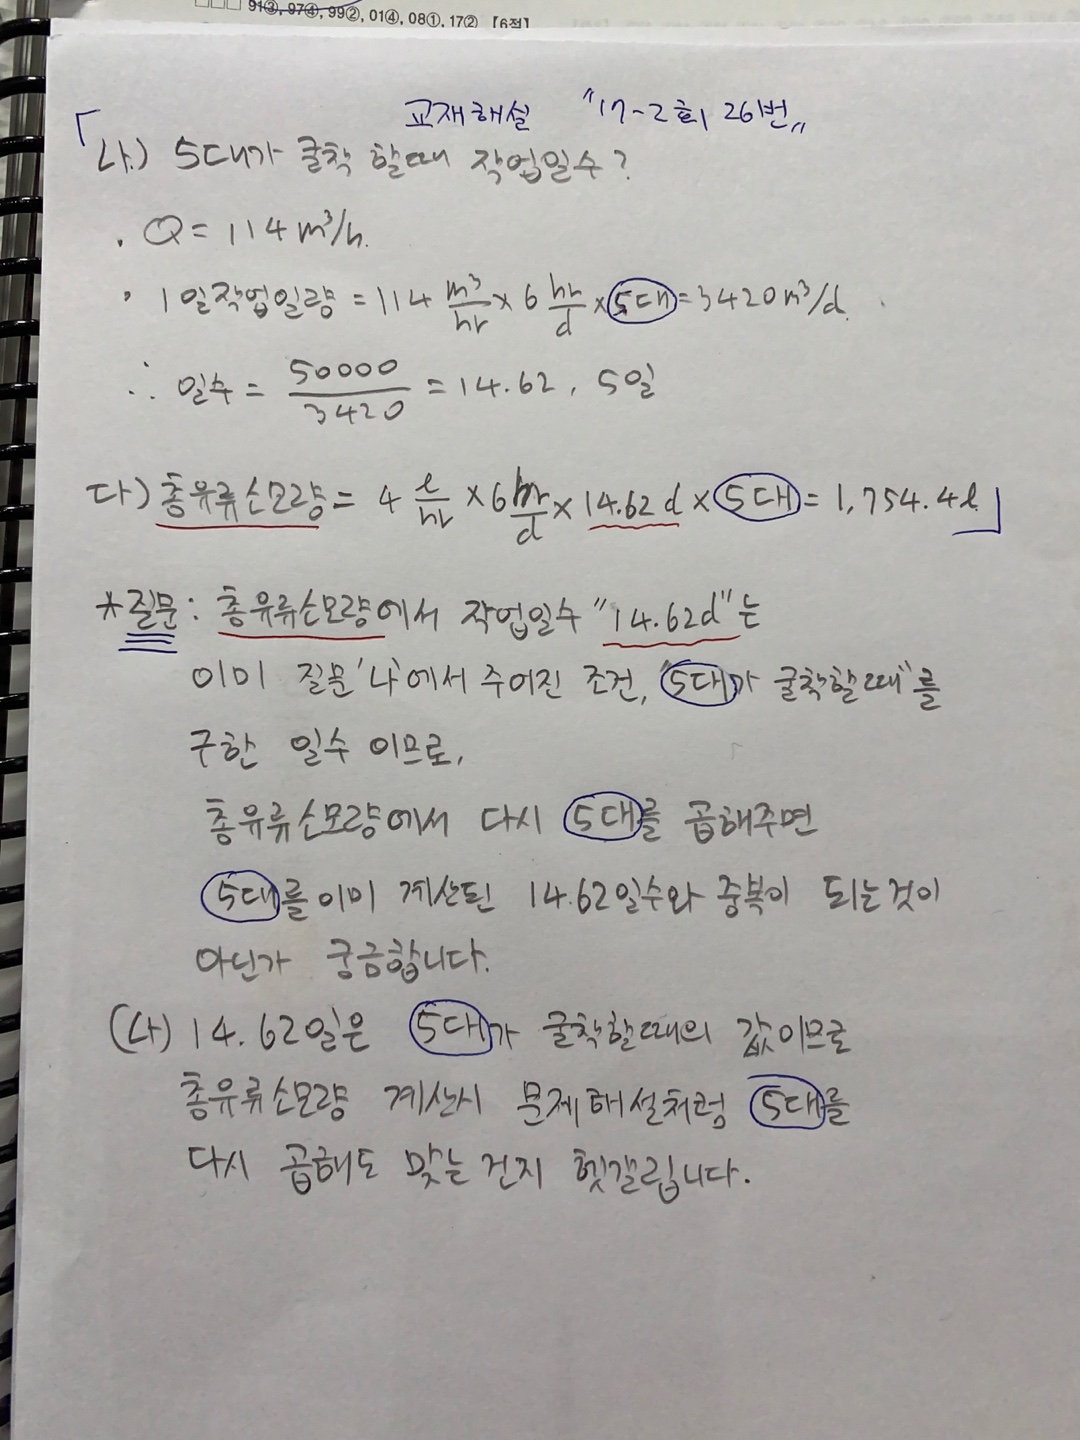 91③, 97④, 99②, 01④, 08①, 17② [6점]
교재해설 "17-2회 26번"
「나) 5대가 굴착 할때 작업일수?
· Q = 114 m³/h.
· 1일작업일량 = 114 m³/hr × 6 hr/d × 5대 = 3420 m³/d.
∴ 일수 = 50000/3420 = 14.62, 5일
다) 총유류소모량 = 4 ℓ/hr × 6 hr/d × 14.62 d × 5대 = 1,754.4ℓ」
* 질문 : 총유류소모량에서 작업일수 "14.62d"는
이미 질문'나'에서 주어진 조건, "5대가 굴착할때"를
구한 일수 이므로,
총유류소모량에서 다시 5대를 곱해주면
5대를 이미 계산된 14.62일수와 중복이 되는것이
아닌가 궁금합니다.
(나) 14.62일은 5대가 굴착할때의 값이므로
총유류소모량 계산시 문제해설처럼 5대를
다시 곱해도 맞는건지 헷갈립니다.